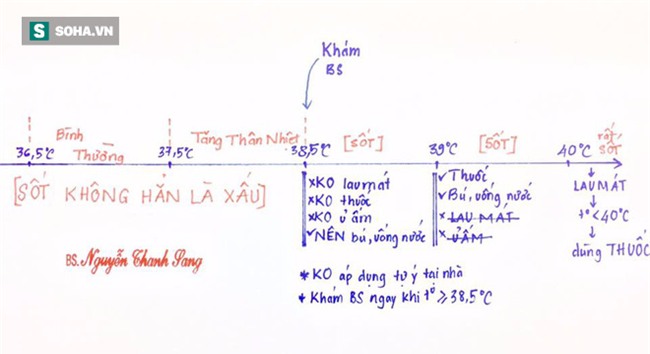 S SOHA.VN
Khám
BS
Bình
Thường
Tăng Thân Nhiệt
[SỐT]
[SỐT]
rất
SỐT
36,5°C
37,5°C
38,5°C
39°C
40°C
[SỐT KHÔNG HẲN LÀ XẤU]
BS. Nguyễn Thanh Sang
x KO lau mát
x KO thuốc
x KO ủ ấm
✓ NÊN bú, uống nước
✓ Thuốc
✓ Bú, uống nước
x LAU MÁT
x Ủ ẤM
↓
LAU MÁT
↓
t° < 40°C
↓
dùng THUỐC
* KO áp dụng tự ý tại nhà
* Khám BS ngay khi t° ≥ 38,5°C